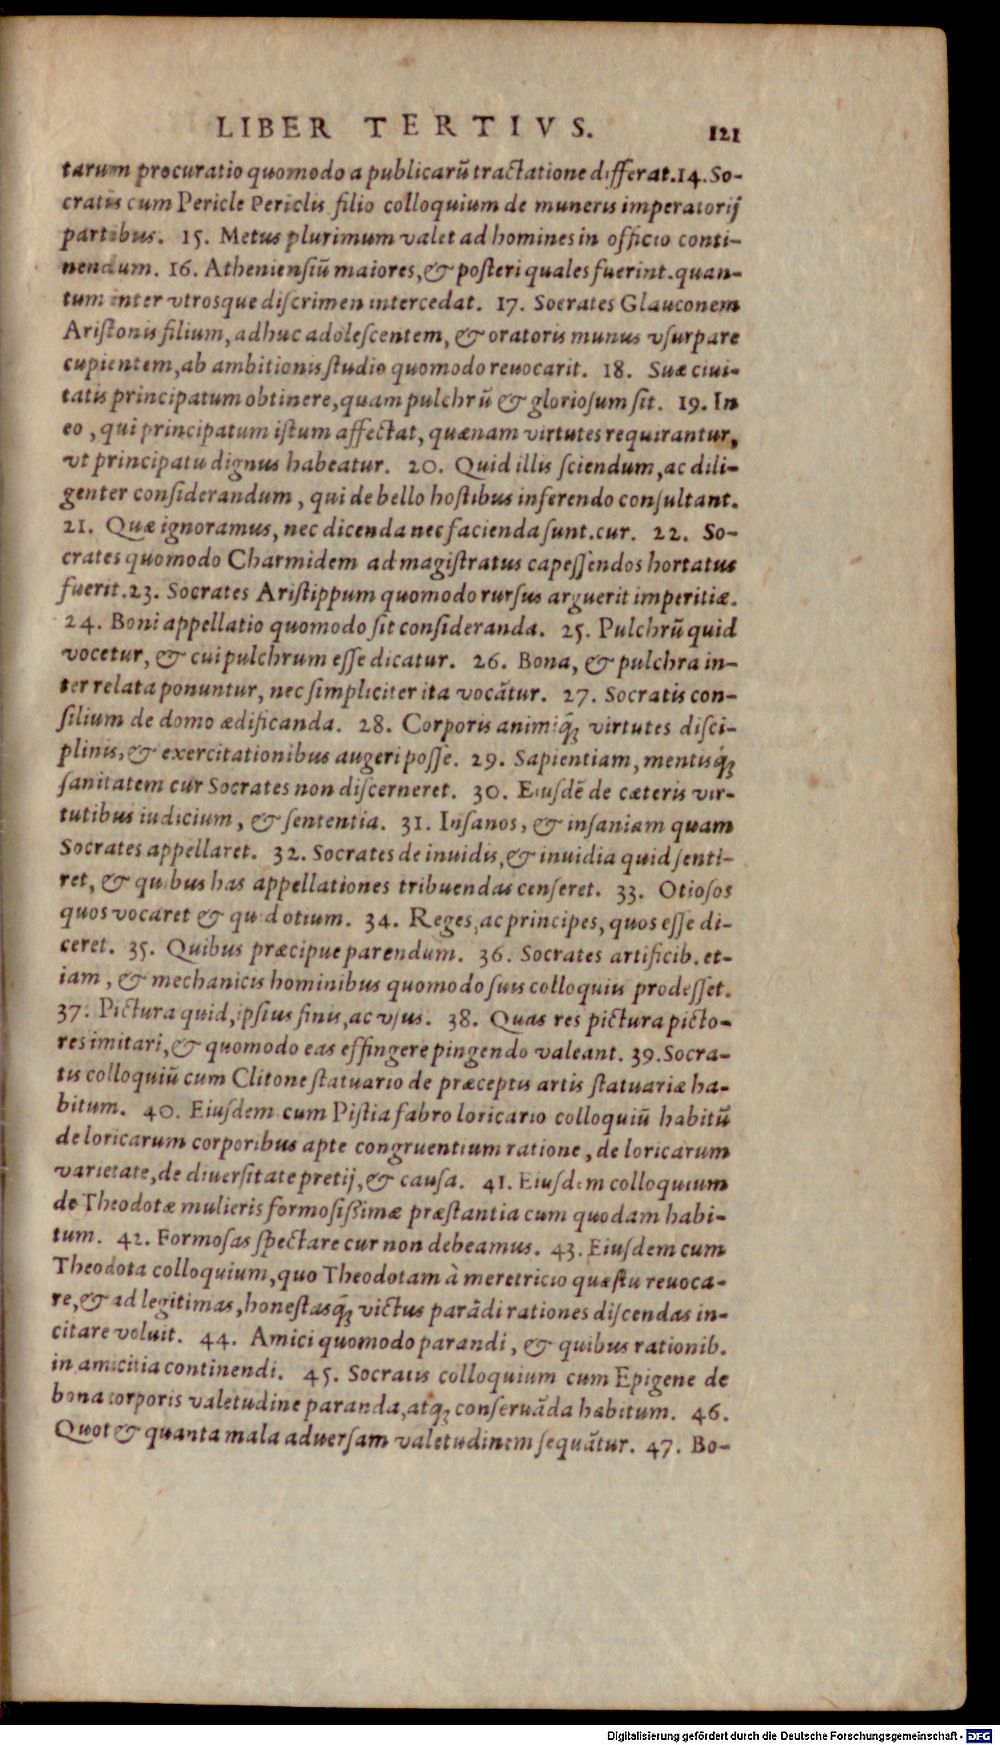 LIBER TERTIVS. 121
tarum procuratio quomodo a publicarũ tractatione differat. 14. So-
cratis cum Pericle Periclis filio colloquium de muneris imperatorij
partibus. 15. Metus plurimum valet ad homines in officio conti-
nendum. 16. Atheniensiũ maiores, & posteri quales fuerint. quan-
tum inter vtrosque discrimen intercedat. 17. Socrates Glauconem
Aristonis filium, adhuc adolescentem, & oratoris munus vsurpare
cupientem, ab ambitionis studio quomodo reuocarit. 18. Suæ ciui-
tatis principatum obtinere, quam pulchrũ & gloriosum sit. 19. In
eo, qui principatum istum affectat, quænam virtutes requirantur,
vt principatu dignus habeatur. 20. Quid illis sciendum, ac dili-
genter considerandum, qui de bello hostibus inferendo consultant.
21. Quæ ignoramus, nec dicenda nec facienda sunt. cur. 22. So-
crates quomodo Charmidem ad magistratus capessendos hortatus
fuerit. 23. Socrates Aristippum quomodo rursus arguerit imperitiæ.
24. Boni appellatio quomodo sit consideranda. 25. Pulchrũ quid
vocetur, & cui pulchrum esse dicatur. 26. Bona, & pulchra in-
ter relata ponuntur, nec simpliciter ita vocãtur. 27. Socratis con-
silium de domo ædificanda. 28. Corporis animiq́; virtutes disci-
plinis, & exercitationibus augeri posse. 29. Sapientiam, mentisq́;
sanitatem cur Socrates non discerneret. 30. Eiusdẽ de cæteris vir-
tutibus iudicium, & sententia. 31. Insanos, & insaniam quam
Socrates appellaret. 32. Socrates de inuidis, & inuidia quid senti-
ret, & quibus has appellationes tribuendas censeret. 33. Otiosos
quos vocaret & quid otium. 34. Reges, ac principes, quos esse di-
ceret. 35. Quibus præcipue parendum. 36. Socrates artificib. et-
iam, & mechanicis hominibus quomodo suis colloquiis prodesset.
37. Pictura quid, ipsius finis, ac vsus. 38. Quas res pictura picto-
res imitari, & quomodo eas effingere pingendo valeant. 39. Socra-
tis colloquiũ cum Clitone statuario de præceptis artis statuariæ ha-
bitum. 40. Eiusdem cum Pistia fabro loricario colloquiũ habitũ
de loricarum corporibus apte congruentium ratione, de loricarum
varietate, de diuersitate pretij, & causa. 41. Eiusdem colloquium
de Theodotæ mulieris formosißimæ præstantia cum quodam habi-
tum. 42. Formosas spectare cur non debeamus. 43. Eiusdem cum
Theodota colloquium, quo Theodotam à meretricio quæstu reuoca-
re, & ad legitimas, honestasq́; victus parãdi rationes discendas in-
citare voluit. 44. Amici quomodo parandi, & quibus rationib.
in amicitia continendi. 45. Socratis colloquium cum Epigene de
bona corporis valetudine paranda, atq́; conseruãda habitum. 46.
Quot & quanta mala aduersam valetudinem sequãtur. 47. Bo-
Digitalisierung gefördert durch die Deutsche Forschungsgemeinschaft - DFG